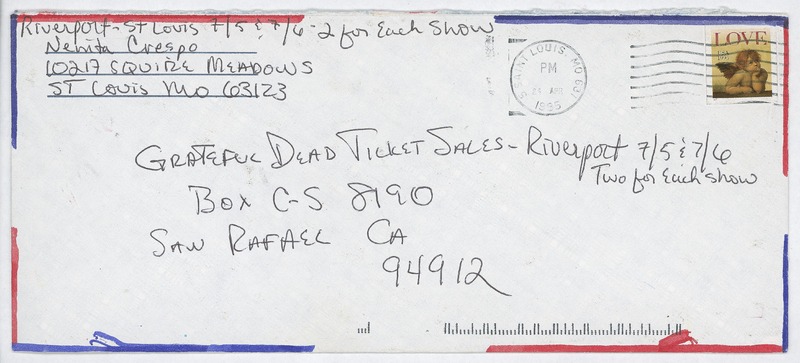 Riverport-St Louis 7/5 & 7/6 - 2 for Each Show
Nenita Crespo
10217 SQUIRE MEADOWS
ST LOUIS MO 63123
SAINT LOUIS, MO 631
PM
1995
LOVE
GRATEFUL DEAD TICKET SALES - Riverport 7/5 & 7/6
Two for Each Show
Box C-S 8190
SAN RAFAEL CA
94912